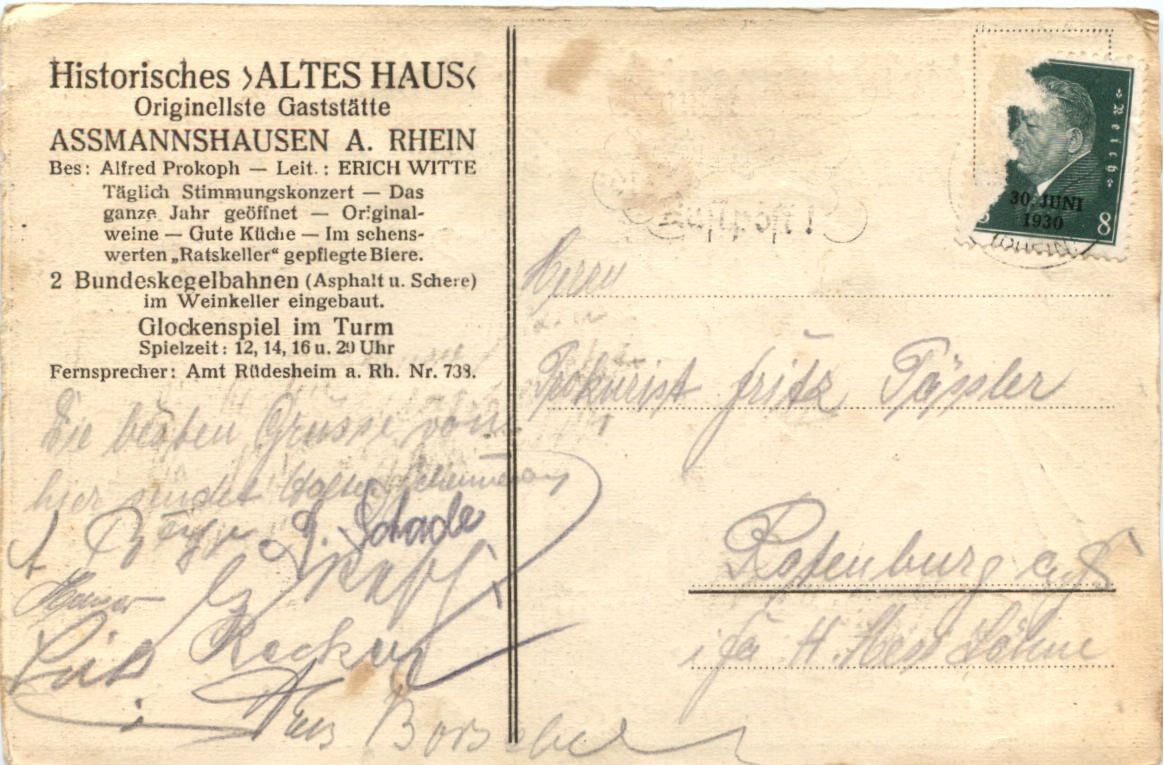 Historisches ›ALTES HAUS‹
Originellste Gaststätte
ASSMANNSHAUSEN A. RHEIN
Bes: Alfred Prokoph — Leit.: ERICH WITTE
Täglich Stimmungskonzert — Das
ganze Jahr geöffnet — Original-
weine — Gute Küche — Im sehens-
werten „Ratskeller“ gepflegte Biere.
2 Bundeskegelbahnen (Asphalt u. Schere)
im Weinkeller eingebaut.
Glockenspiel im Turm
Spielzeit: 12, 14, 16 u. 20 Uhr
Fernsprecher: Amt Rüdesheim a. Rh. Nr. 738.
Die besten Grüsse von
hier sendet
Schade
Reich
30. JUNI
1930
8
Herrn
Prokurist Fritz
Rotenburg a/F
H. Söhne